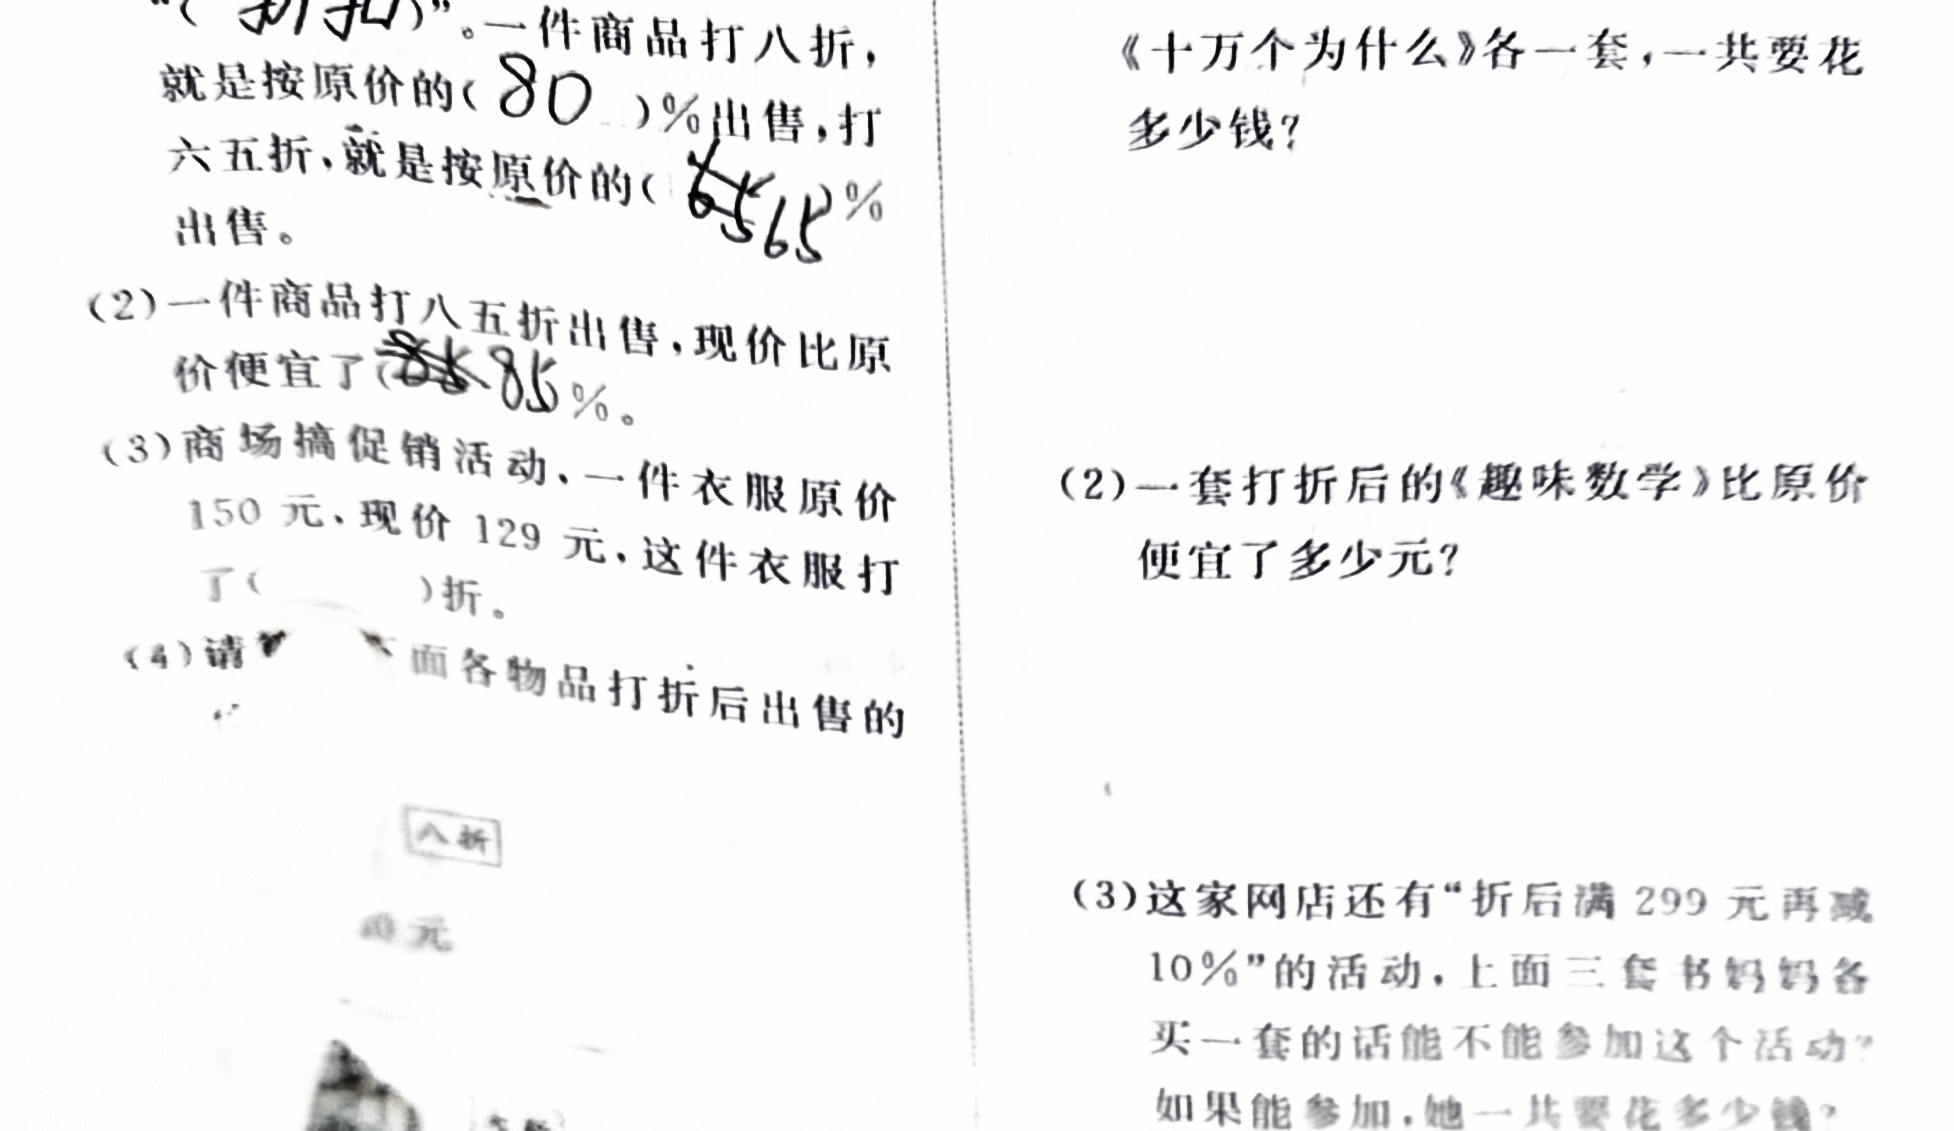 “(折扣)”。一件商品打八折，
就是按原价的(80)%出售，打
六五折，就是按原价的(65)%
出售。
(2)一件商品打八五折出售，现价比原
价便宜了(85)%。
(3)商场搞促销活动，一件衣服原价
150元，现价129元，这件衣服打
了( )折。
(4)请 面各物品打折后出售的
八折
元
《十万个为什么》各一套，一共要花
多少钱？
(2)一套打折后的《趣味数学》比原价
便宜了多少元？
(3)这家网店还有“折后满299元再减
10%”的活动，上面三套书妈妈各
买一套的话能不能参加这个活动？
如果能参加，她一共要花多少钱？